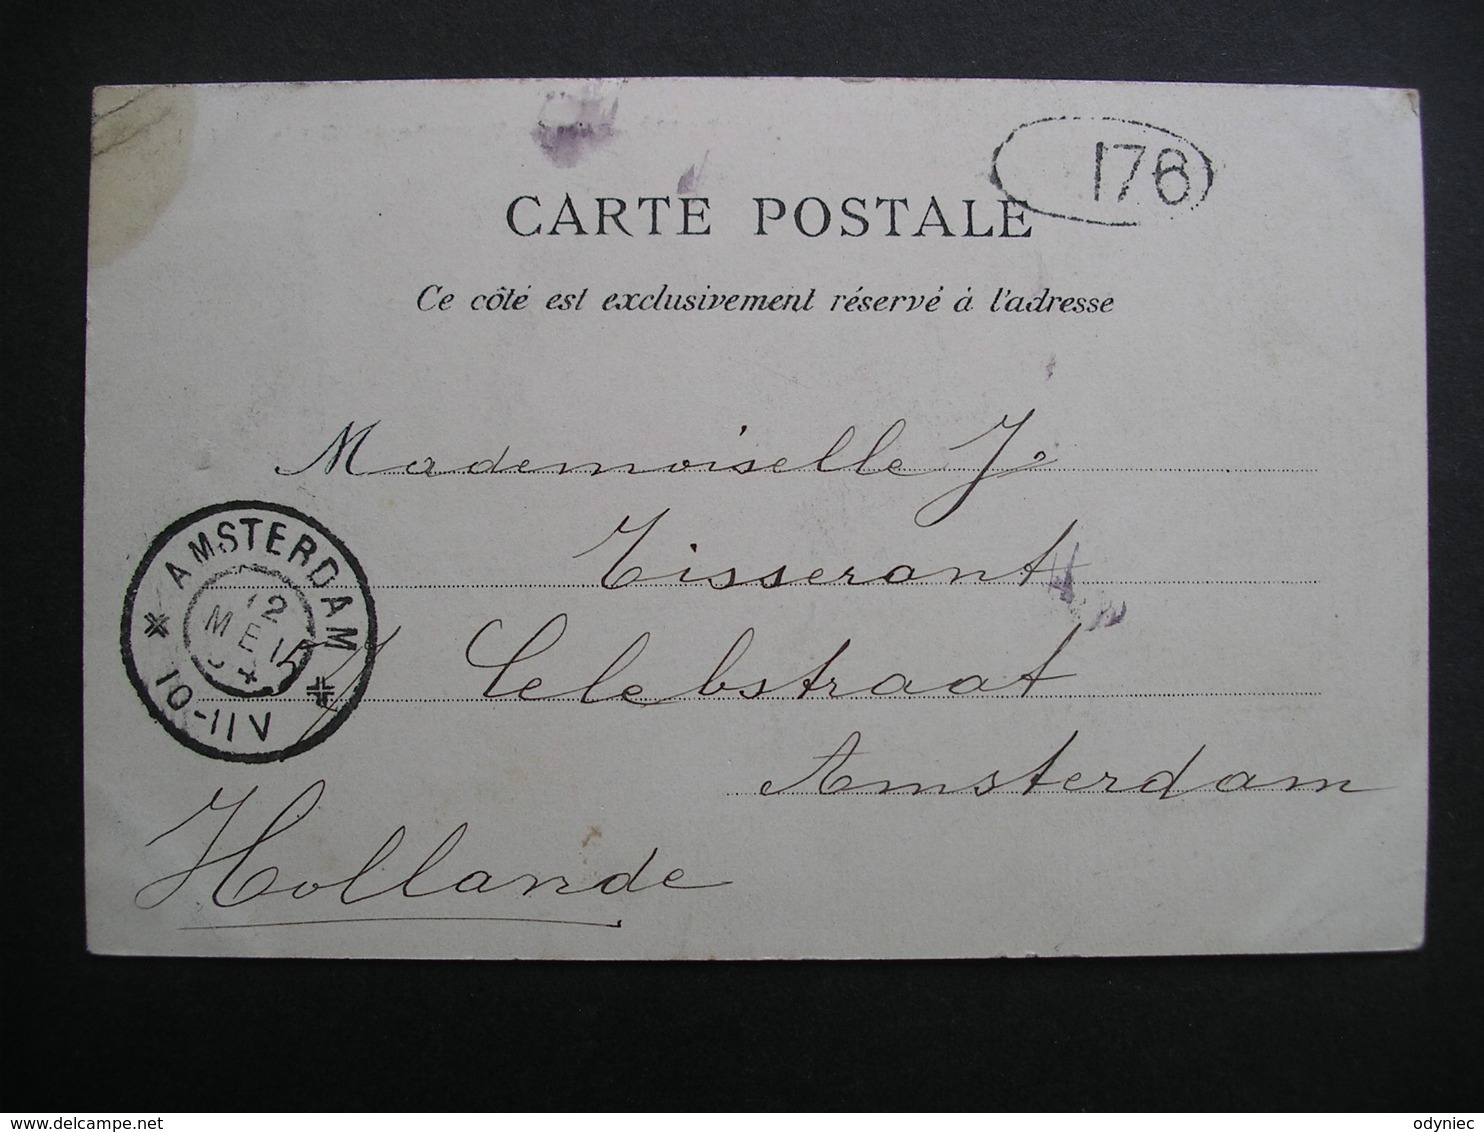 176
CARTE POSTALE
Ce côté est exclusivement réservé à l'adresse
Mademoiselle Jo
Tisserant
Celebstraat
Amsterdam
Hollande
AMSTERDAM
12
MEI
04
10-11V
odyniec
delcampe.net